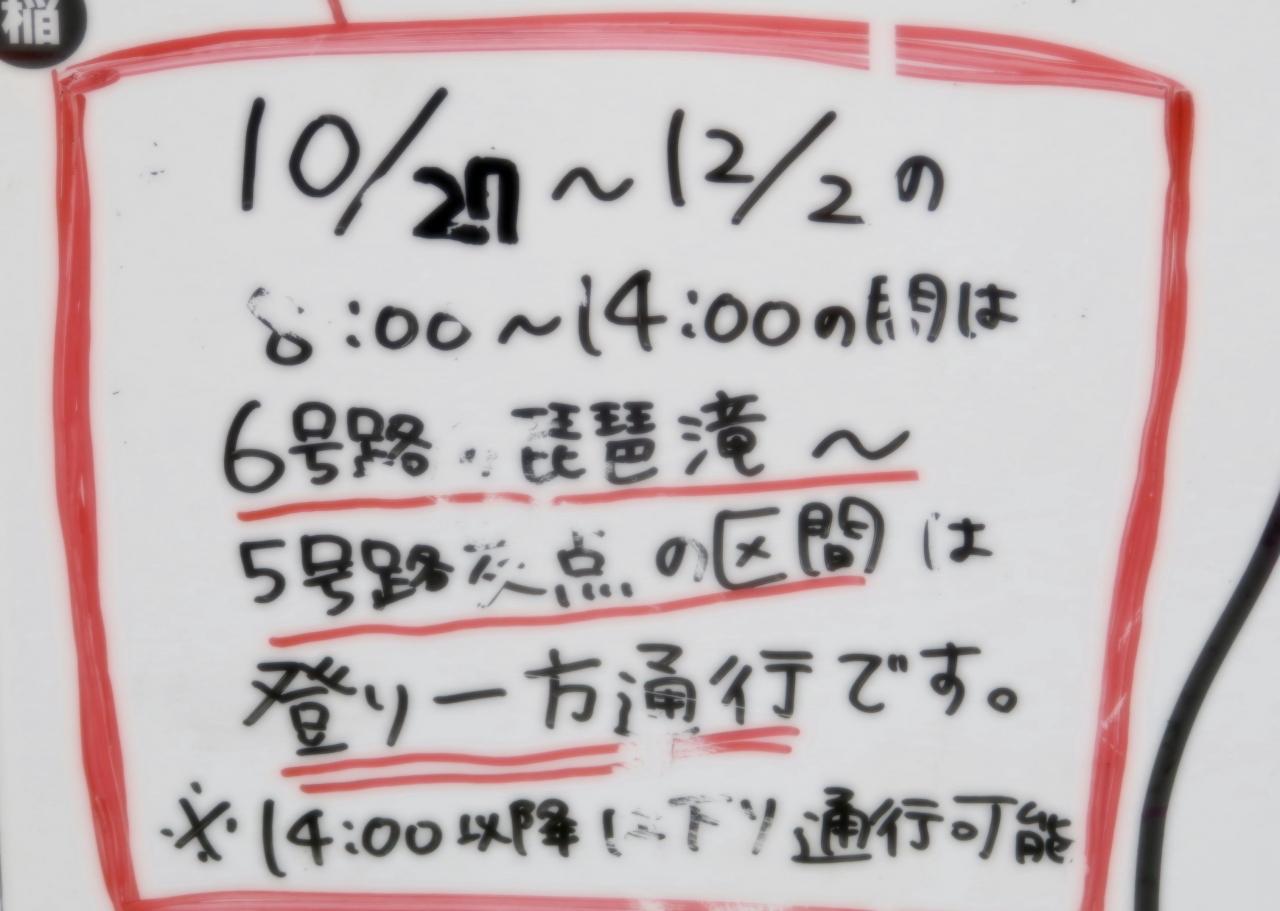 稲
10/27～12/2の
8:00～14:00の間は
6号路・琵琶滝～
5号路交点の区間は
登り一方通行です。
※14:00以降は下り通行可能